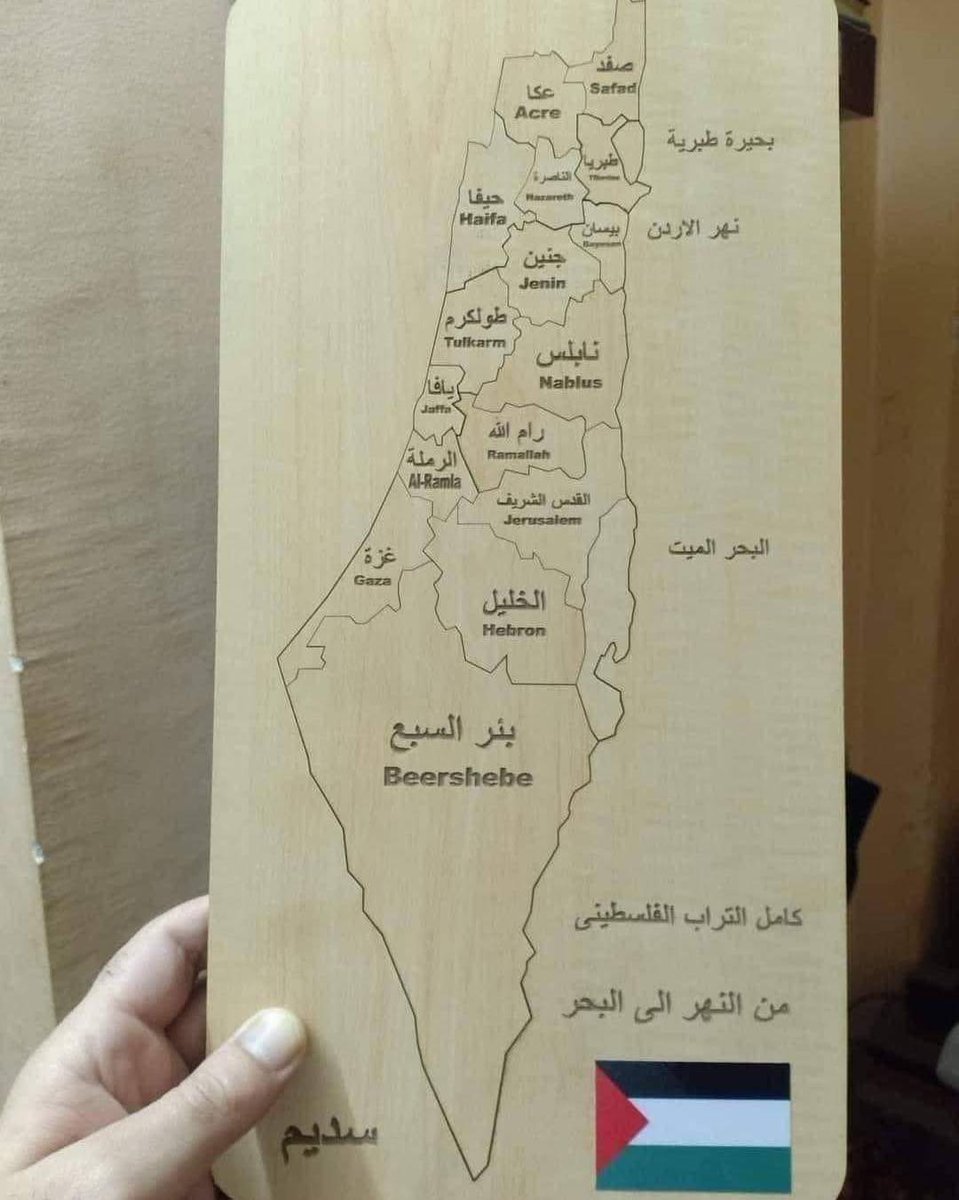 صفد
Safad
عكا
Acre
بحيرة طبرية
طبريا
Tiberias
الناصرة
Nazareth
حيفا
Haifa
نهر الاردن
بيسان
جنين
Jenin
طولكرم
Tulkarm
نابلس
Nablus
يافا
Jaffa
رام الله
Ramallah
الرملة
Al-Ramla
القدس الشريف
Jerusalem
البحر الميت
غزة
Gaza
الخليل
Hebron
بئر السبع
Beershebe
كامل التراب الفلسطينى
من النهر الى البحر
سديم